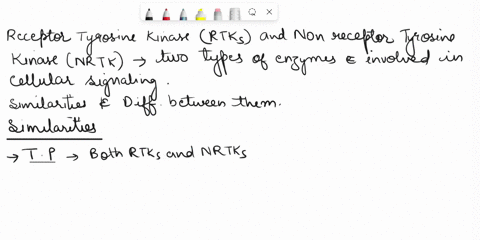 Receptor Tyrosine Kinase (RTKs) and Non receptor Tyrosine
Kinase (NRTK) → two types of enzymes ∈ involved in
cellular signaling.
Similarities & Diff. between them.
Similarities
→ T.P → Both RTKs and NRTKs